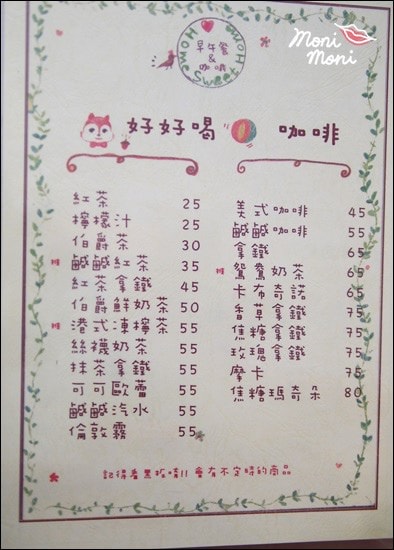 Home Sweet Home
早午餐
&
咖啡
Moni
Moni
好好喝
紅茶 25
檸檬汁 25
伯爵茶 30
鹹鹹紅茶 35
紅茶拿鐵 45
伯爵鮮奶茶 50
港式凍檸茶 55
絲襪奶茶 55
抹茶拿鐵 55
可可歐蕾 55
鹹鹹汽水 55
倫敦霧 55
咖啡
美式咖啡 45
鹹鹹咖啡 55
拿鐵 65
鴛鴦奶茶 65
卡布奇諾 65
香草拿鐵 75
焦糖拿鐵 75
玫瑰拿鐵 75
摩卡 75
焦糖瑪奇朵 80
記得看黑板唷!! 會有不定時的商品